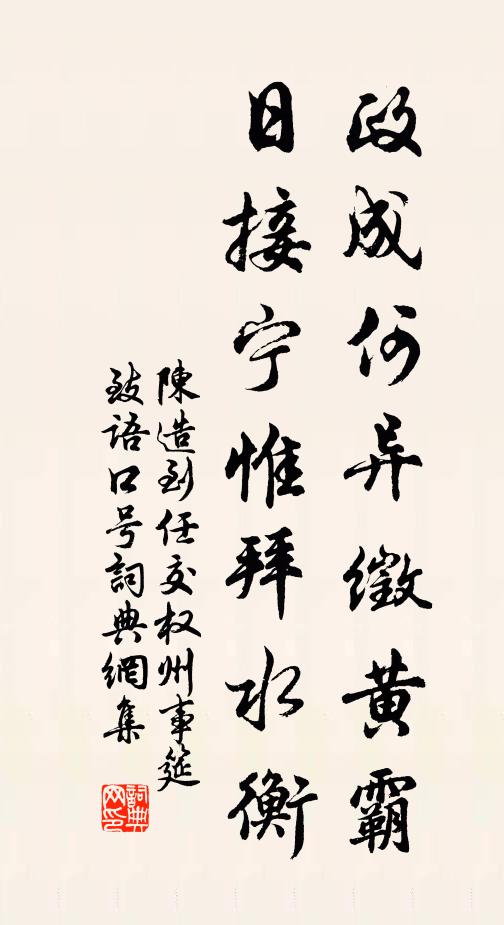 政成何异徵黄霸
日接宁惟拜水衡
陳造到任交权州事筵
致语口号詞典網集
詞典网印